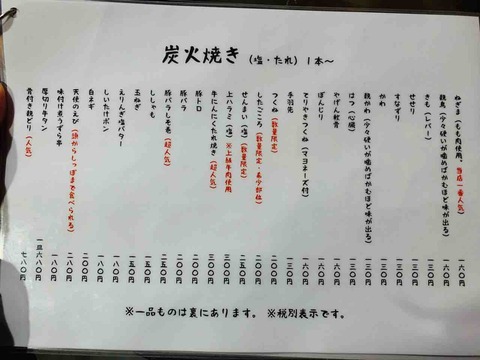 炭火焼き（塩・たれ）１本～
ねぎま（もも肉使用。当店一番人気） 一六〇円
親鳥（少々硬いが噛めばかむほど味が出る） 一六〇円
きも（レバー） 一三〇円
せせり 一六〇円
すなずり 一三〇円
かわ 一三〇円
親かわ（少々硬いが噛めばかむほど味が出る） 一三〇円
はつ（心臓） 一三〇円
やげん軟骨 一六〇円
ぼんじり 一六〇円
てりやきつくね（マヨネーズ付） 一六〇円
手羽先 一三〇円
つくね（数量限定） 二〇〇円
したごころ（数量限定・希少部位） 二〇〇円
せんまい（塩）（数量限定） 二三〇円
上ハラミ（塩）※上級牛肉使用 三〇〇円
牛にんにくたれ焼き（超人気） 三〇〇円
豚トロ 二〇〇円
豚バラ 二〇〇円
豚バラしそ巻（超人気） 二五〇円
ししゃも 一五〇円
玉ねぎ 一五〇円
えりんぎ塩バター 一八〇円
しいたけポン 一八〇円
白ネギ 一〇〇円
天使のえび（頭からしっぽまで食べられる） 二八〇円
味付け煮うずら串 一八〇円
厚切り牛タン 六八〇円
骨付き親どり（人気） 七八〇円
※一品ものは裏にあります。 ※税別表示です。